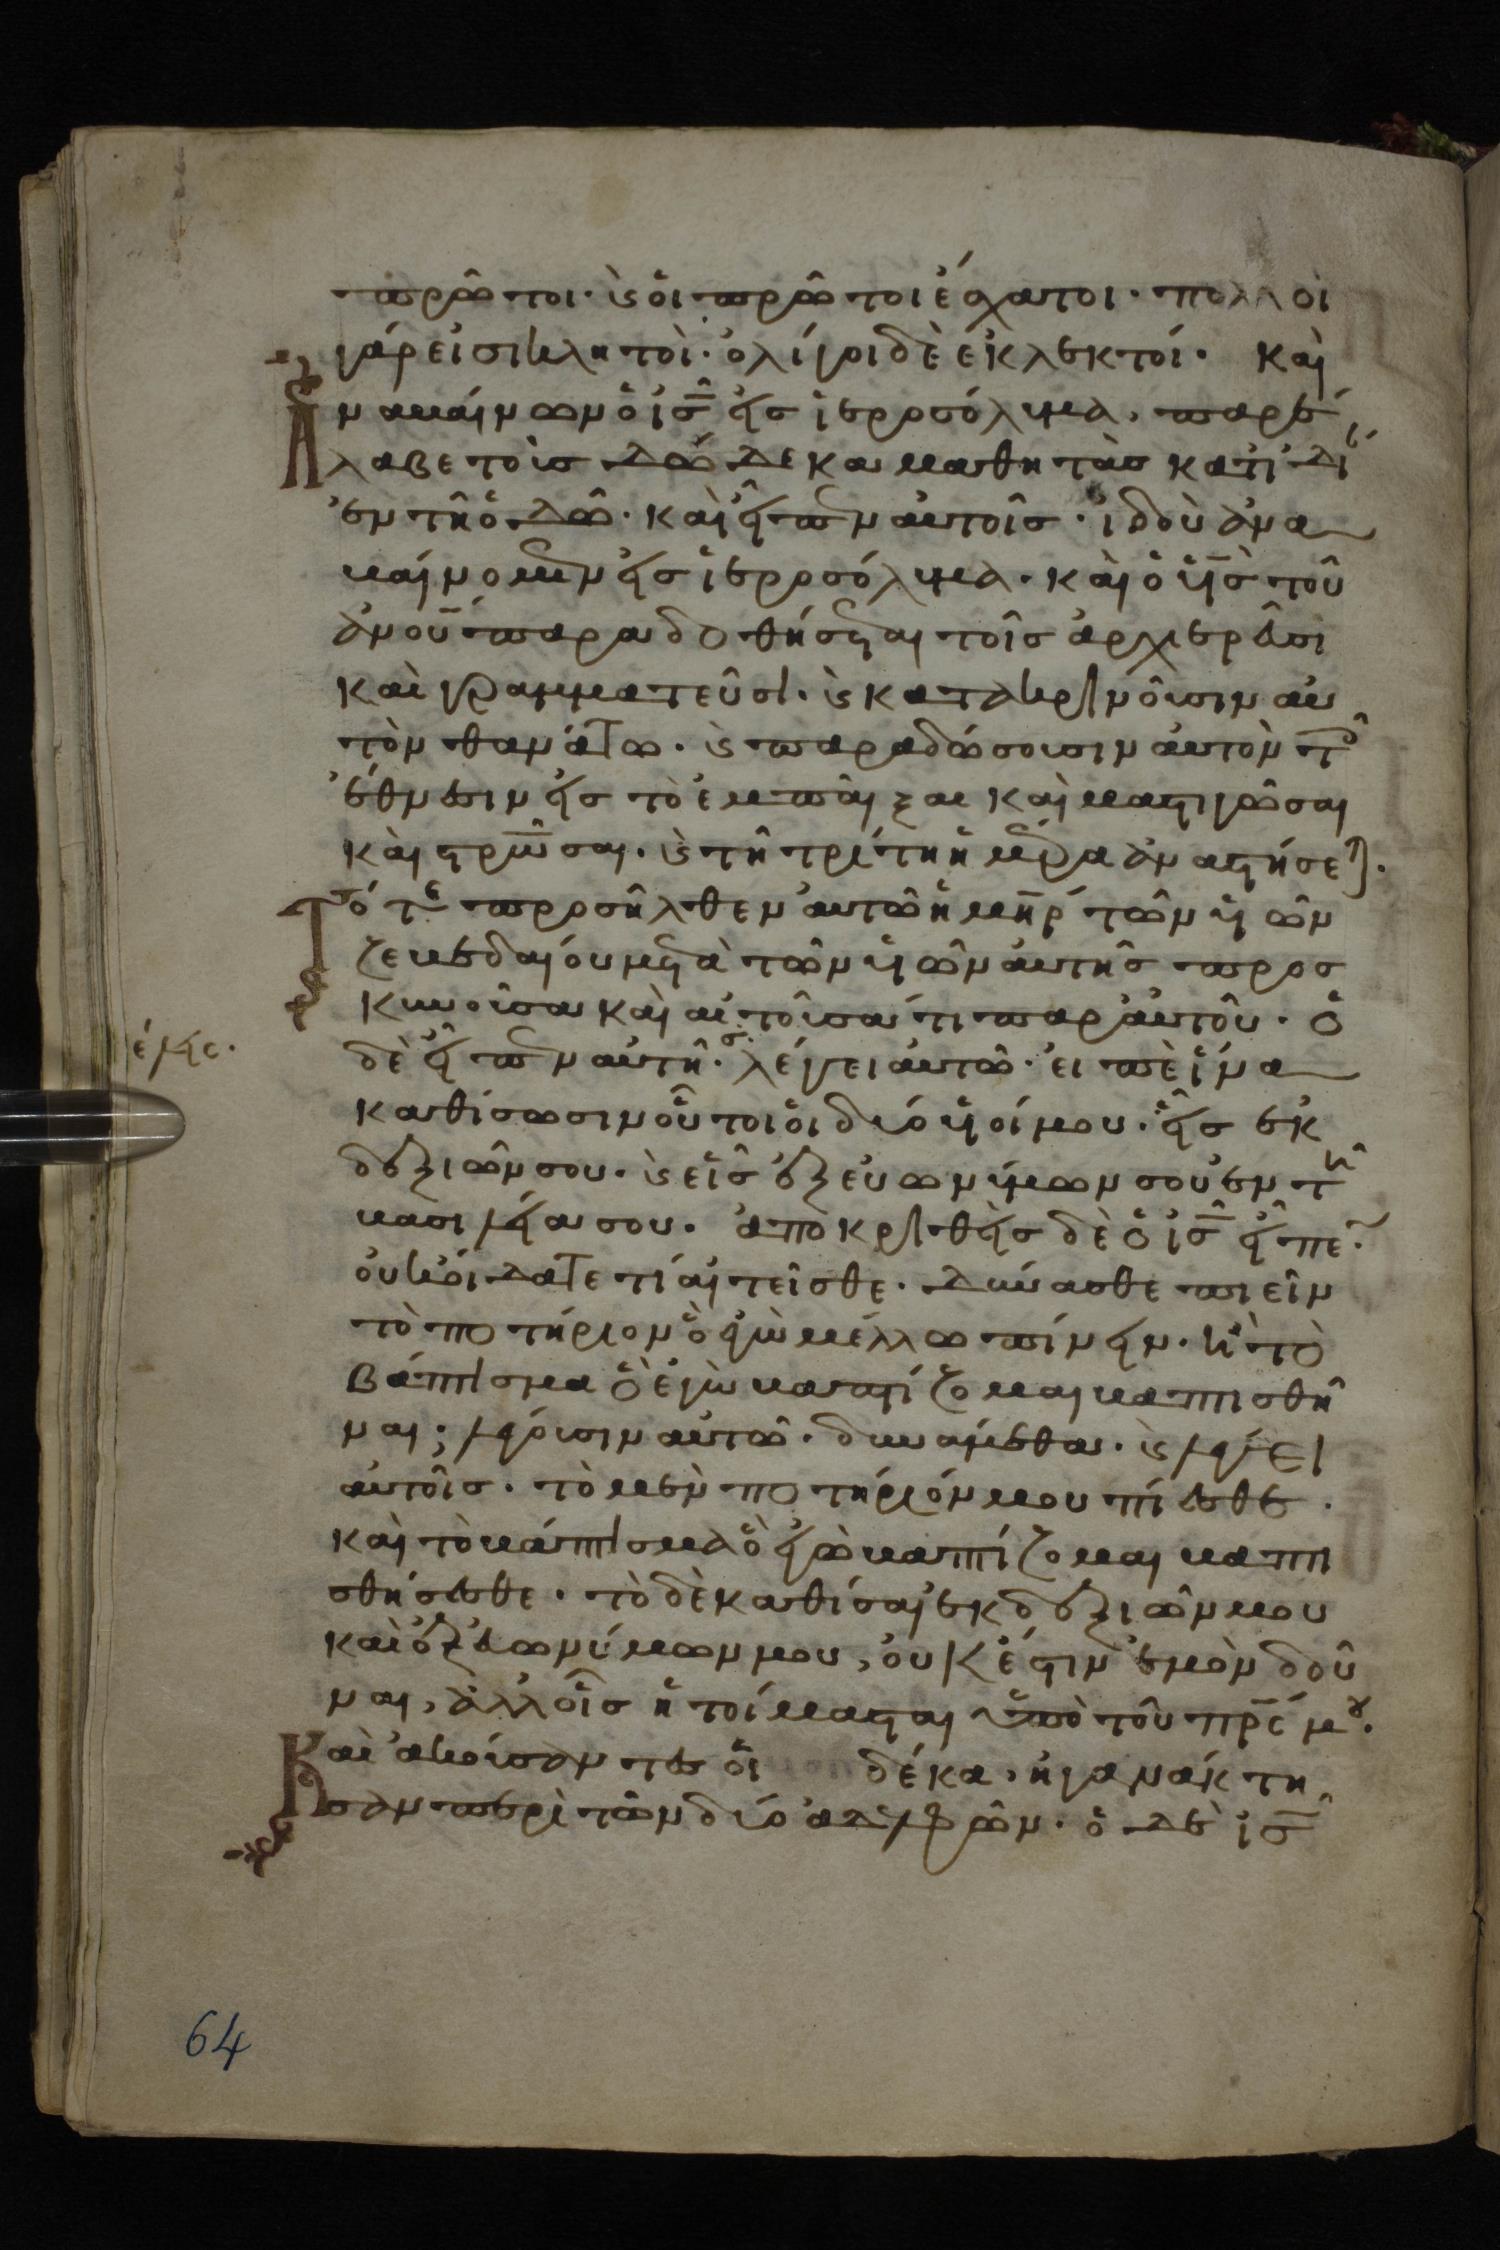 πρῶτοι· καὶ οἱ πρῶτοι ἔσχατοι· πολλοὶ
γάρ εἰσι κλητοὶ· ὀλίγοι δὲ ἐκλεκτοί· Καὶ
ἀναβαίνων ὁ ις εἰς ἱεροσόλυμα, παρέ
λαβε τοὺς δώδεκα μαθητὰς κατιδί
ἐν τῆ ὁδῶ· καὶ εἶπεν αὐτοῖς· ἰδοὺ ἀνα
βαίνομεν εἰς ἱεροσόλυμα· καὶ ὁ υς τοῦ
ανου παραδοθήσεται τοῖς ἀρχιερεῦσι
καὶ γραμματεῦσι· καὶ κατακρινοῦσιν αὐ
τὸν θανάτω· καὶ παραδώσουσιν αὐτὸν τοῖ
ἔθνεσιν εἰς τὸ ἐμπαῖξαι καὶ μαστιγῶσαι
καὶ στρωσαι· καὶ τῆ τρίτη ἡμέρα ἀναστήσεται·
Τότε προσῆλθεν αὐτῶ ἡ μηρ τῶν υἱῶν
ζεβεδαίου μετὰ τῶν υἱῶν αὐτῆς προσ
κυνοῦσα καὶ αἰτοῦσά τι παρ' αὐτοῦ· ὁ
δὲ εἶπεν αὐτῆ· λέγει αὐτῶ· εἰπὲ ἵνα
καθίσωσιν οὗτοι οἱ δύο υἱοί μου· εἷς ἐκ
δεξιῶν σου· καὶ εἷς ἐξ εὐωνύμων σου ἐν τῆ
βασιλεία σου· ἀποκριθεὶς δὲ ὁ ις εἶπε·
οὐκ οἴδατε τί αἰτεῖσθε· δύνασθε πιεῖν
τὸ ποτήριον ὃ ἐγὼ μέλλω πίνειν· ἢ τὸ
βάπτισμα ὃ ἐγὼ βαπτίζομαι βαπτισθῆ
ναι; λέγουσιν αὐτῶ· δυνάμεθα· καὶ λέγει
αὐτοῖς· τὸ μὲν ποτήριόν μου πίεσθε·
καὶ τὸ βάπτισμα ὃ ἐγὼ βαπτίζομαι βαπτι
σθήσεσθε· τὸ δὲ καθίσαι ἐκ δεξιῶν μου
καὶ ἐξ εὐωνύμων μου, οὐκ ἔστιν ἐμὸν δοῦ
ναι, ἀλλ' οἷς ἡτοίμασται ὑπὸ τοῦ πρς μου·
Καὶ ἀκούσαντες οἱ δέκα, ἠγανάκτη
σαν περὶ τῶν δύο ἀδελφῶν· ὁ δὲ ις
64